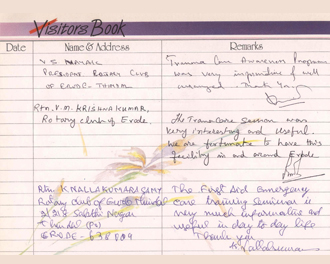 Visitors Book
Date Name & Address Remarks
V.S.
President Rotary Club
of Erode-
Trauma Care Awareness Program
was very impressive & well
arranged. Thank You
Rtn. V.M. KRISHNAKUMAR,
Rotary club of Erode.
The Trauma Care session was
very interesting and useful.
We are fortunate to have this
facility in and around Erode.
Rtn K NALLAKUMARASAMY
Rotary club of
Nagar
Thindal (Po)
ERODE - 638 009
The First Aid Emergency
care training seminar is
very much informative and
useful in day to day life
Thank you